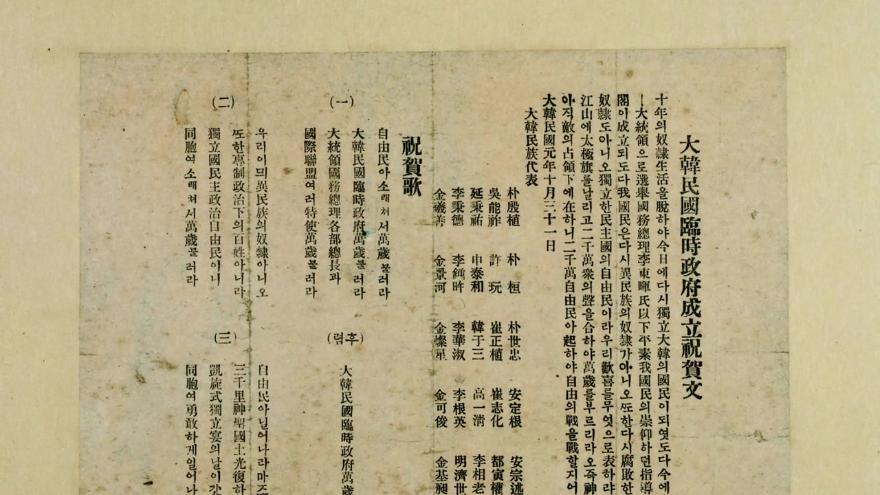 大韓民國臨時政府成立祝賀文
十年의奴隸生活을脫하야今日에다시獨立大韓의國民이되엿도다今에
大統領으로選擧國務總理李東暉氏以下平素我國民의崇仰하던指導
閣이成立되도다我國民은다시異民族의奴隸가아니오ᄯᅩ한다시腐敗한
奴隸도아니오獨立한民主國의自由民이라우리歡喜를무엇으로表하랴
江山에太極旗를날리고二千萬衆의聲을合하야萬歲를부르리라오즉神
아직敵의占領下에在하니二千萬自由民아起하야自由의戰을戰할지어
大韓民國元年十月三十一日
大韓民族代表
朴殷植 朴桓 朴世忠 安定根 安宗述
吳能祚 許玩 崔正植 崔志化 都寅權
延秉祐 申泰和 韓于三 高一淸 李相老
李秉德 李鍾旿 李華淑 李根英 明濟世
金羲善 金景河 金燦星 金可俊 金基昶
祝賀歌
(一)
自由民아소래쳐서萬歲불러라
大韓民國臨時政府萬歲불러라
大統領國務總理各部總長과
國際聯盟여러特使萬歲불러라
(후렴)
大韓民國臨時政府萬歲
(二)
우리이믜異民族의奴隸아니오
ᄯᅩ한專制政治下의百姓아니라
獨立國民主政治自由民이니
同胞여소래쳐서萬歲불러라
(三)
自由民아닐어나라마즈
三千里神聖國土光復하
凱旋式獨立宴의날이갓
同胞여勇敢하게일어나